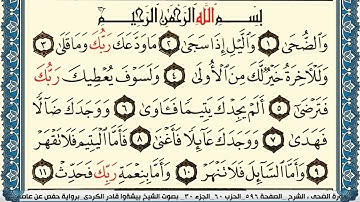 بِسْمِ اللَّهِ الرَّحْمَٰنِ الرَّحِيمِ
وَالضُّحَىٰ ١ وَاللَّيْلِ إِذَا سَجَىٰ ٢ مَا وَدَّعَكَ رَبُّكَ وَمَا قَلَىٰ ٣
وَلَلْآخِرَةُ خَيْرٌ لَّكَ مِنَ الْأُولَىٰ ٤ وَلَسَوْفَ يُعْطِيكَ رَبُّكَ
فَتَرْضَىٰ ٥ أَلَمْ يَجِدْكَ يَتِيمًا فَآوَىٰ ٦ وَوَجَدَكَ ضَالًّا
فَهَدَىٰ ٧ وَوَجَدَكَ عَائِلًا فَأَغْنَىٰ ٨ فَأَمَّا الْيَتِيمَ فَلَا تَقْهَرْ
٩ وَأَمَّا السَّائِلَ فَلَا تَنْهَرْ ١٠ وَأَمَّا بِنِعْمَةِ رَبِّكَ فَحَدِّثْ ١١
رة الضحى ، الشرح الصفحة ٥٩٦ الحزب ٦٠ الجزء ٣٠ بصوت الشيخ بيشةوا قادر الكردي برواية حفص عن عاصم